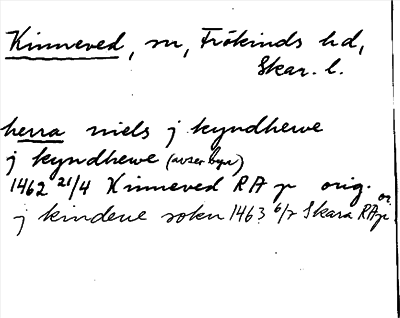 Kinneved, sn, Frökinds hd,
Skar. l.
herra niels j kyndhewe
j kyndhewe (avser byn)
1462 21/4 Kinneved RA p orig.
j kindene sokn 1463 6/2 Skara RA p or.